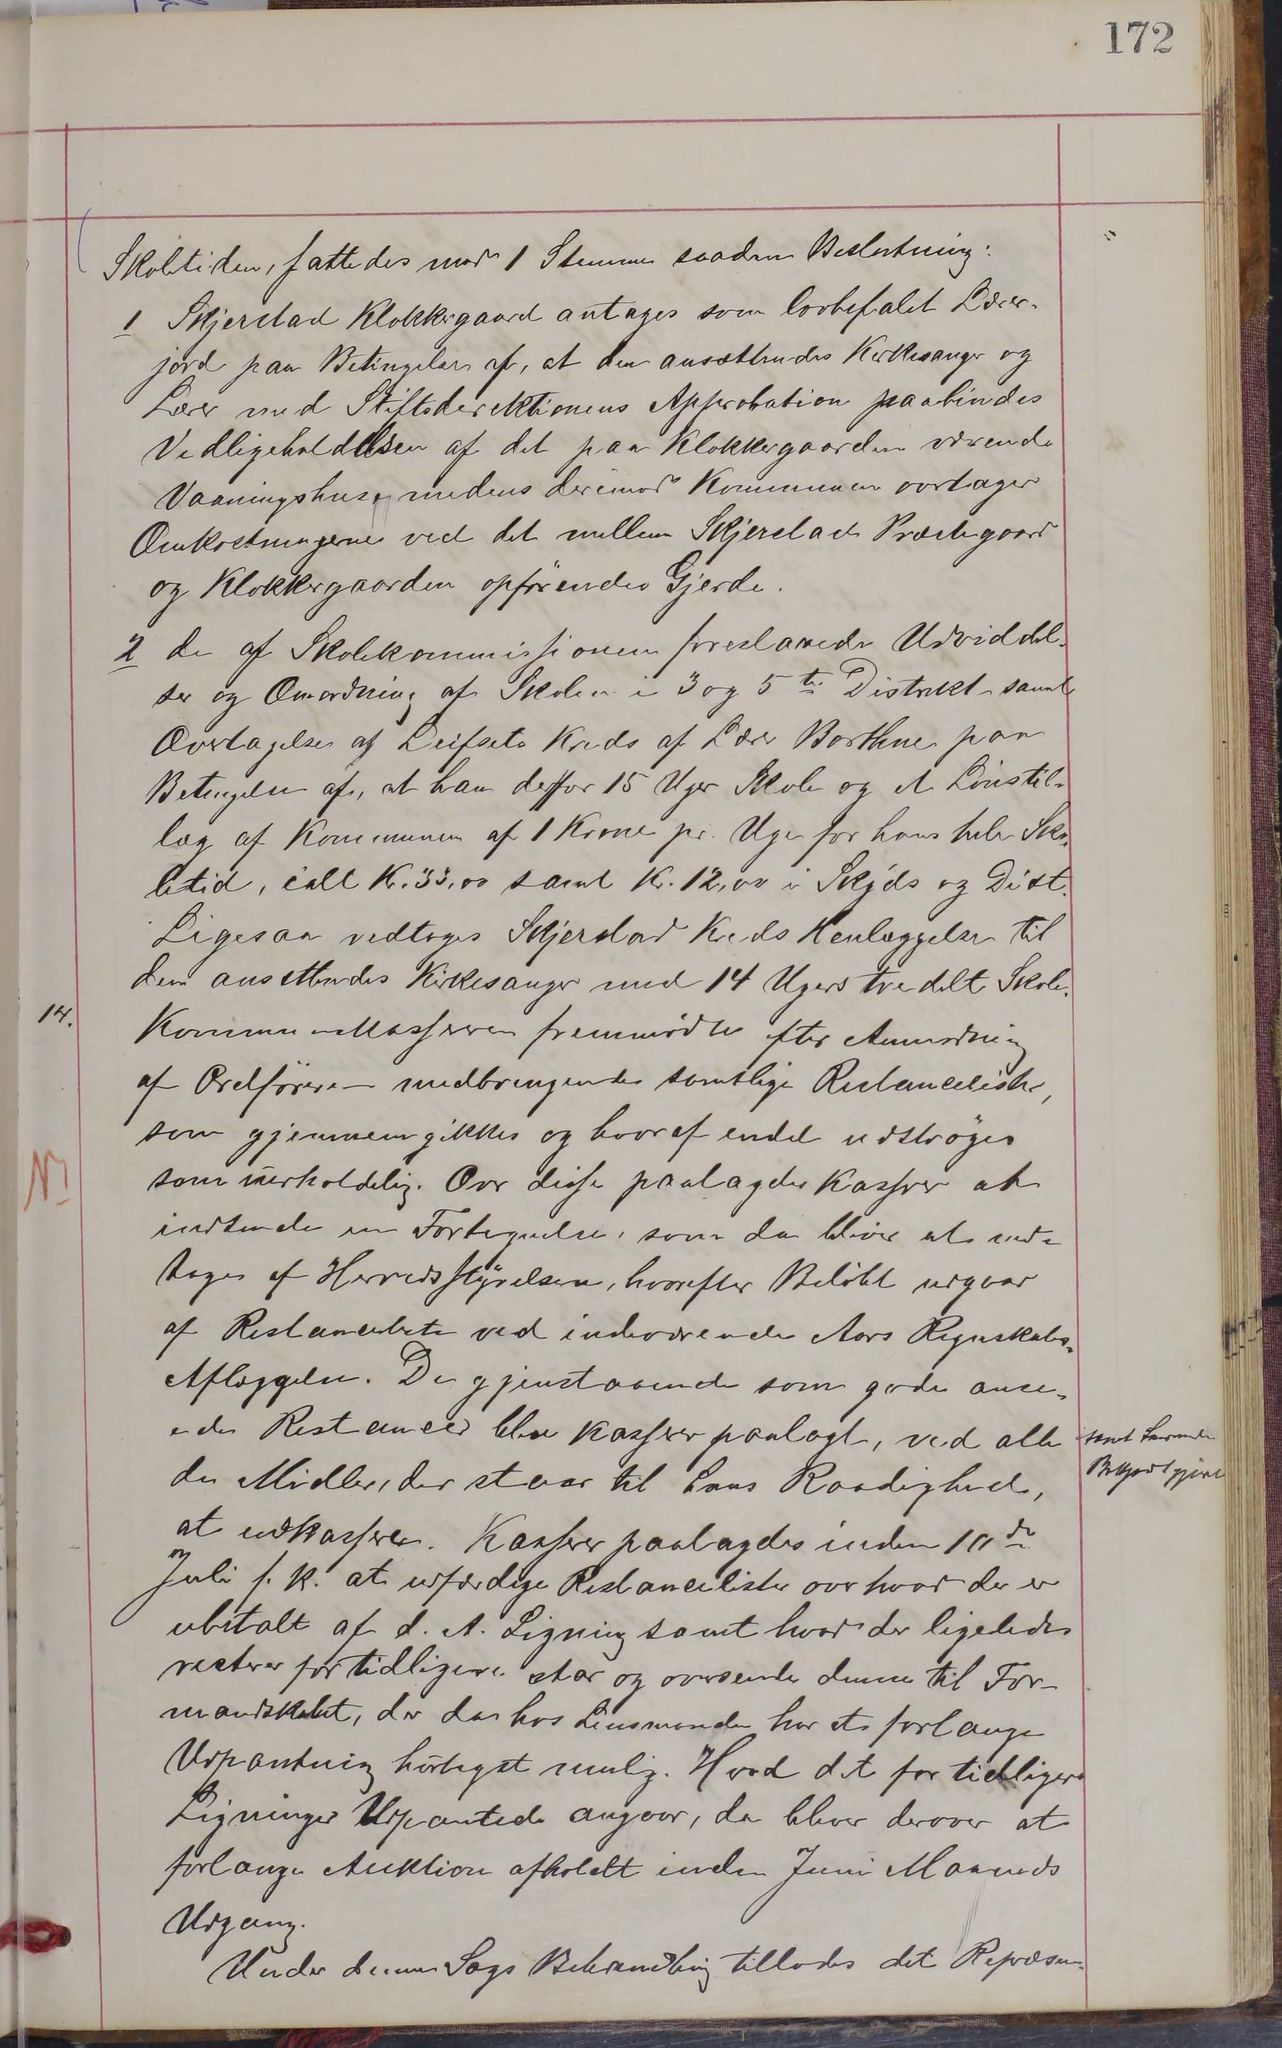 172
Skoletiden, fattedes mod 1 Stemme saadan Beslutning:
1 Skjerstad Klokkergaard antages som lovbefalet Lærer-
jord paa Betingelse af, at den ansættendes Kirkesanger og
Lærer med Stiftsdirektionens Approbation paabindes
Vedligeholdelsen af det paa Klokkergaarden værende
Vaaningshus, medens derimod Kommunen overtager
Omkostningerne ved det mellem Skjerstad Præstegaard
og Klokkergaarden opførendes Gjerde.
2 de af Skolekommissionen foreslaaede Udvidel-
ser og Omordning af Skolen i 3 og 5te Distrikt samt
Overtagelse af Leifsets Kreds af Lærer Borthne paa
Betingelse af, at han derfor 15 Uger Skole og et Lønstil-
læg af Kommunen af 1 Krone pr. Uge for hans hele Sko-
letid, ialt Kr. 33,00 samt Kr. 12,00 i Skyds og Diæt.
Ligesaa vedtoges Skjerstad Kreds Henlæggelse til
den ansættendes Kirkesanger med 14 Ugers tredelt Skole.
14. Kommunekasserer fremmødte efter Anmodning
af Ordføreren medbringende samtlige Restancelister,
som gjennemgikkes og hvoraf endel udstrøges
som uerholdelig. Over disse paalagdes Kasserer at
indsende en Fortegnelse, som da bliver at ved-
tages af Herredsstyrelsen, hvorefter Beløbet udgaar
af Restancelisten ved indeværende Aars Regnskabs-
Aflæggelse. De gjenstaaende som gode anse-
ede Restancer blev Kasserer paalagt, ved alle
de Midler, der staar til hans Raadighed,
samt
at indkassere. Kasserer paalagdes inden 10de
Juli f. k. at udfærdige Restancelister over hvad der er
ubetalt af d. A. Ligning samt hvad der ligeledes
resterer for tidligere Aar og oversende denne til For-
mandskabet, der da hos Lensmanden har at forlange
Udpantning hurtigst mulig. Hvad det for tidligere
Ligninger Udpantede angaar, da bliver derover at
forlange Auktion afholdt inden Juni Maaneds
Udgang.
Under denne Sags Behandling tillodes det Repræsen-